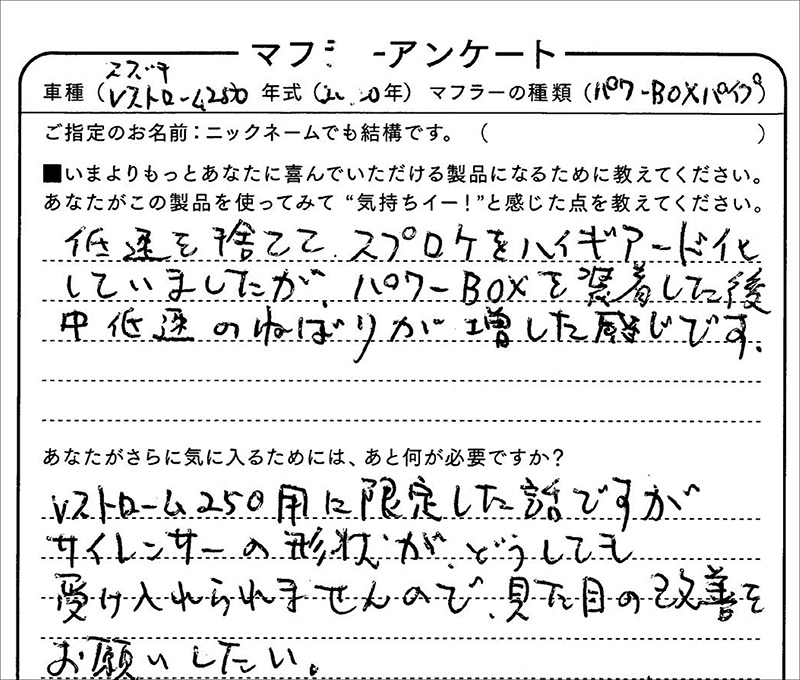 マフ ーアンケート
スズキ
車種（Vストローム250 年式（20 20年）マフラーの種類（パワーBOXパイプ）
ご指定のお名前：ニックネームでも結構です。（ ）
■いまよりもっとあなたに喜んでいただける製品になるために教えてください。
あなたがこの製品を使ってみて“気持ちイー！”と感じた点を教えてください。
低速を捨てて、スプロケをハイギアード化
していましたが、パワーBOXを装着した後
中低速のねばりが増した感じです。
あなたがさらに気に入るためには、あと何が必要ですか？
Vストローム250用に限定した話ですが
サイレンサーの形状が、どうしても
受け入れられませんので、見た目の改善を
お願いしたい。